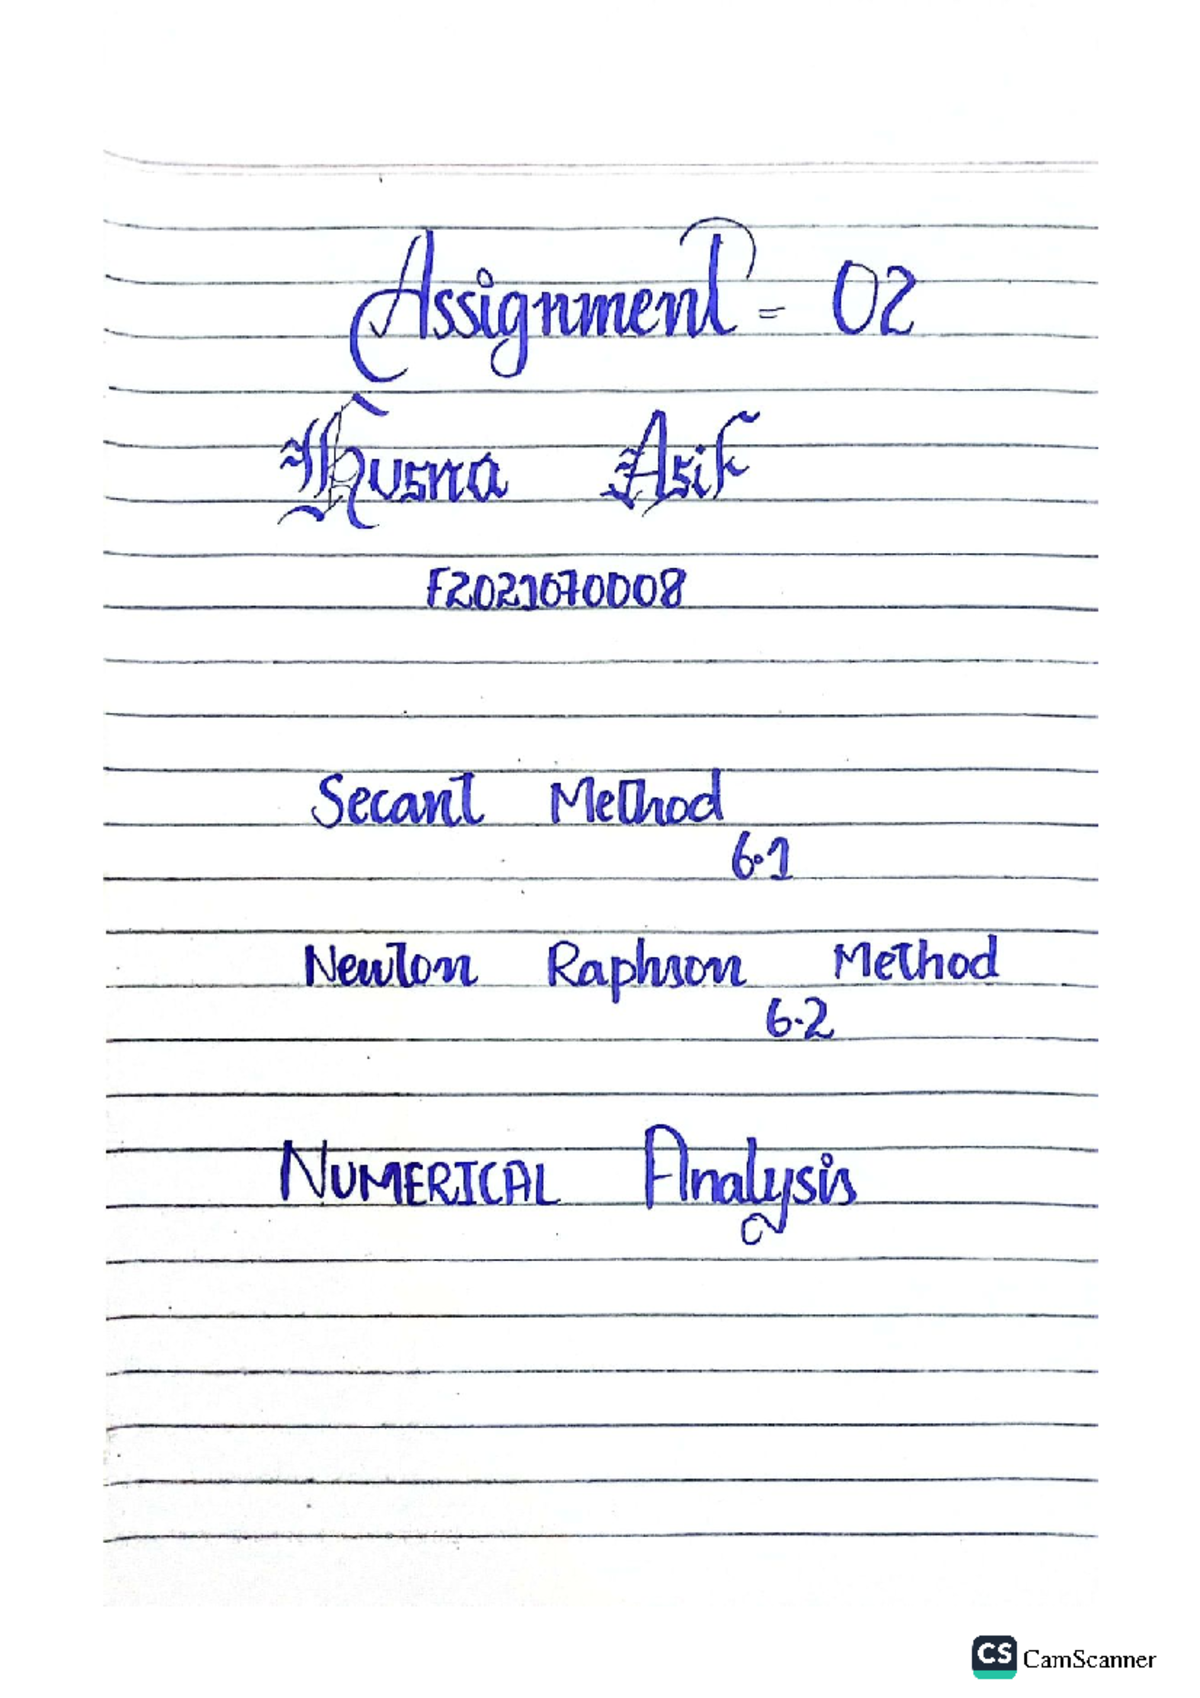 Assignment - 02
Husna Asif
F2021070008
Secant Method
6.1
Newton Raphson Method
6.2
NUMERICAL Analysis
CS CamScanner